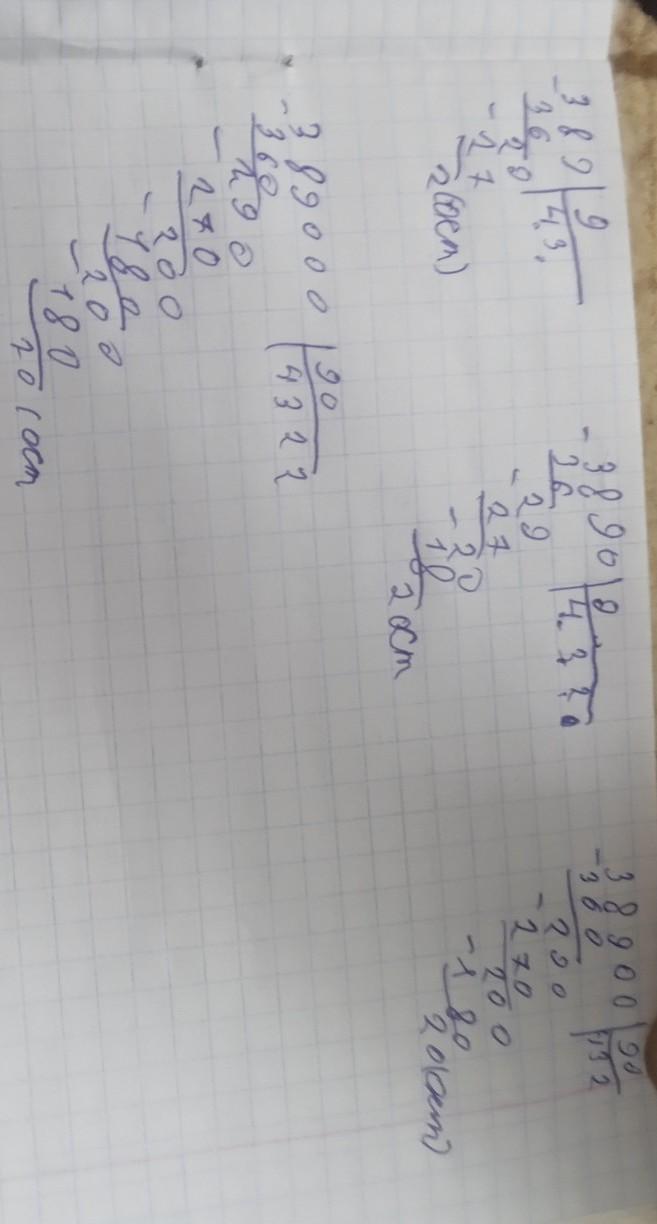 -389|9
36 |4.3.
-29
27
2(ост)
-3890|9
36 |4.32
-29
27
-20
18
2 ост
-38900|90
360 |432
-290
270
-200
180
20(ост)
-389000|90
360 |4322
-290
270
-200
180
-200
180
20(ост